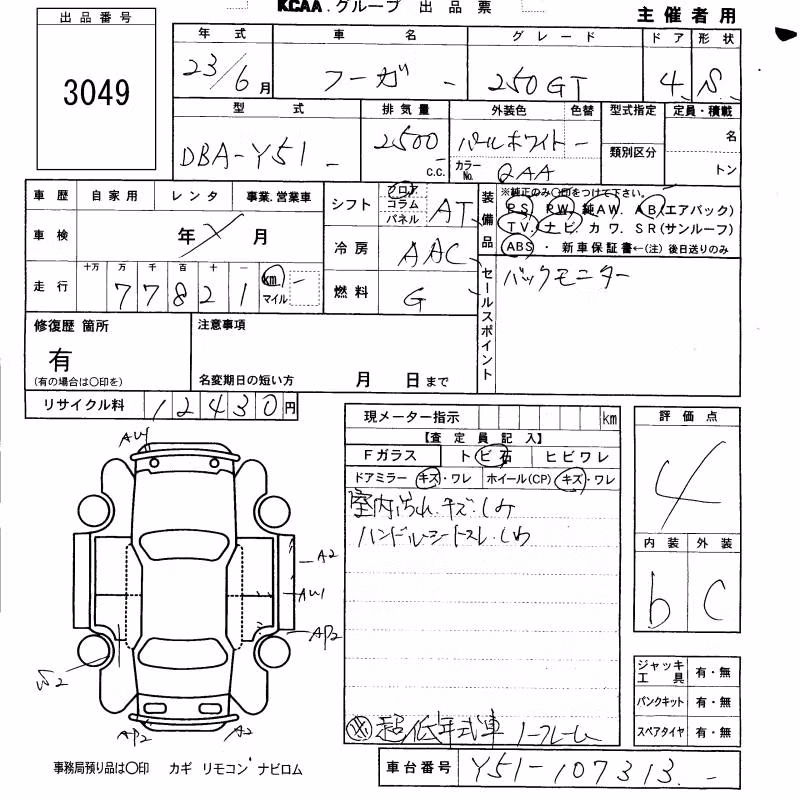 KCAA.グループ 出品票
主催者用
出品番号
3049
年式 車名 グレード ドア 形状
23/6月 フーガ - 250GT 4 S
型式 排気量 外装色 色替 型式指定 定員・積載
DBA-Y51 - 2500 c.c. パールホワイト - 名
カラーNo. QAA 類別区分 トン
車歴 自家用 レンタ 事業.営業車
シフト フロア コラム パネル AT
装備品 ※純正のみ○印をつけて下さい。
PS PW 純AW. AB(エアバック)
TV. ナビ. カワ. SR(サンルーフ)
ABS ・ 新車保証書←(注) 後日送りのみ
車検 年 月
冷房 AAC
走行 十万 万 千 百 十 一
77821 km マイル -
燃料 G
セールスポイント
バックモニター
修復歴 箇所
有
(有の場合は○印を)
注意事項
名変期日の短い方 月 日まで
リサイクル料 12430円
現メーター指示 km
【査定員記入】
Fガラス トビ石 ヒビワレ
ドアミラー キズ・ワレ ホイール(CP) キズ・ワレ
室内汚れ.キズ.しみ
ハンドル.シートスレ.しわ
評価点
4
内装 外装
b C
AW1
A2
AW1
AP2
W2
AP2
A2
ジャッキ工具 有・無
パンクキット 有・無
スペアタイヤ 有・無
超低年式車 ノーフレーム
事務局預り品は○印 カギ リモコン ナビロム
車台番号 Y51-107313. -